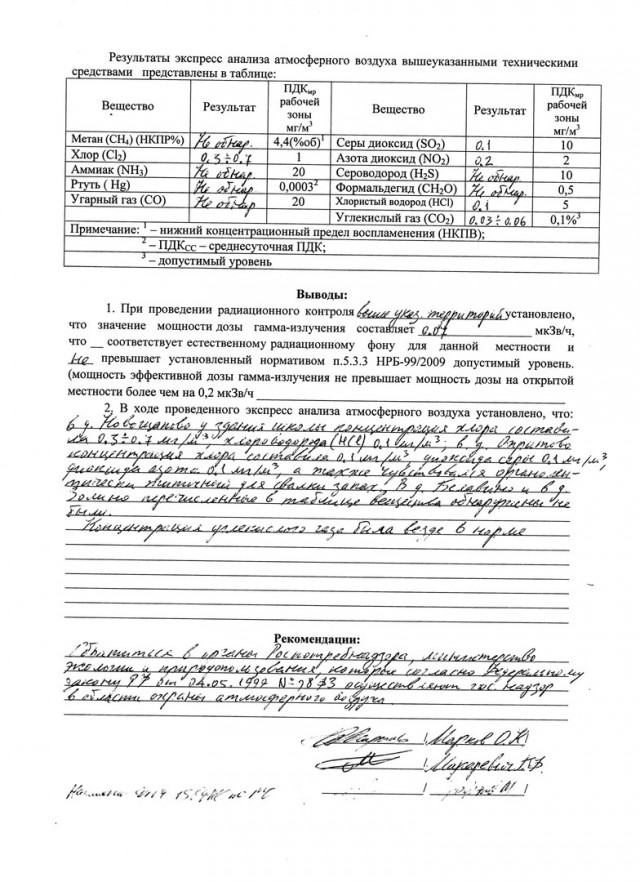 Результаты экспресс анализа атмосферного воздуха вышеуказанными техническими
средствами представлены в таблице:
Вещество Результат ПДКмр рабочей зоны мг/м³ Вещество Результат ПДКмр рабочей зоны мг/м³
Метан (CH₄) (НКПР%) Не обнар. 4,4(%об)¹ Серы диоксид (SO₂) 0,1 10
Хлор (Cl₂) 0,3÷0,7 1 Азота диоксид (NO₂) 0,2 2
Аммиак (NH₃) Не обнар. 20 Сероводород (H₂S) Не обнар. 10
Ртуть ( Hg) Не обнар 0,0003² Формальдегид (CH₂O) Не обнар. 0,5
Угарный газ (CO) Не обнар 20 Хлористый водород (HCl) 0,1 5
Углекислый газ (CO₂) 0,03÷0,06 0,1%³
Примечание: ¹ – нижний концентрационный предел воспламенения (НКПВ);
² – ПДКСС – среднесуточная ПДК;
³ – допустимый уровень
Выводы:
1. При проведении радиационного контроля выше указ. территорий установлено,
что значение мощности дозы гамма-излучения составляет 0.07 мкЗв/ч,
что __ соответствует естественному радиационному фону для данной местности и
не превышает установленный нормативом п.5.3.3 НРБ-99/2009 допустимый уровень.
(мощность эффективной дозы гамма-излучения не превышает мощность дозы на открытой
местности более чем на 0,2 мкЗв/ч
2. В ходе проведенного экспресс анализа атмосферного воздуха установлено, что:
в д. у здания школы концентрация хлора состави-
ла 0,3÷0.7 мг/м³, хлороводорода (HCl) 0,1 мг/м³; в д.
концентрация хлора составила 0,1 мг/м³, диоксида серы 0,1 мг/м³,
диоксида азота 0,1 мг/м³, а также чувствовался органолеп-
тически типичный для свалки запах. В д. и в д.
перечисленные в таблице вещества обнаружены не
были.
Концентрация углекислого газа была везде в норме
Рекомендации:
Обратиться в органы Роспотребнадзора, министерство
экологии и природопользования, которое согласно Федеральному
закону РФ от 04.05.1999 осуществляют гос. надзор
в области охраны атмосферного воздуха
Марков О.Н